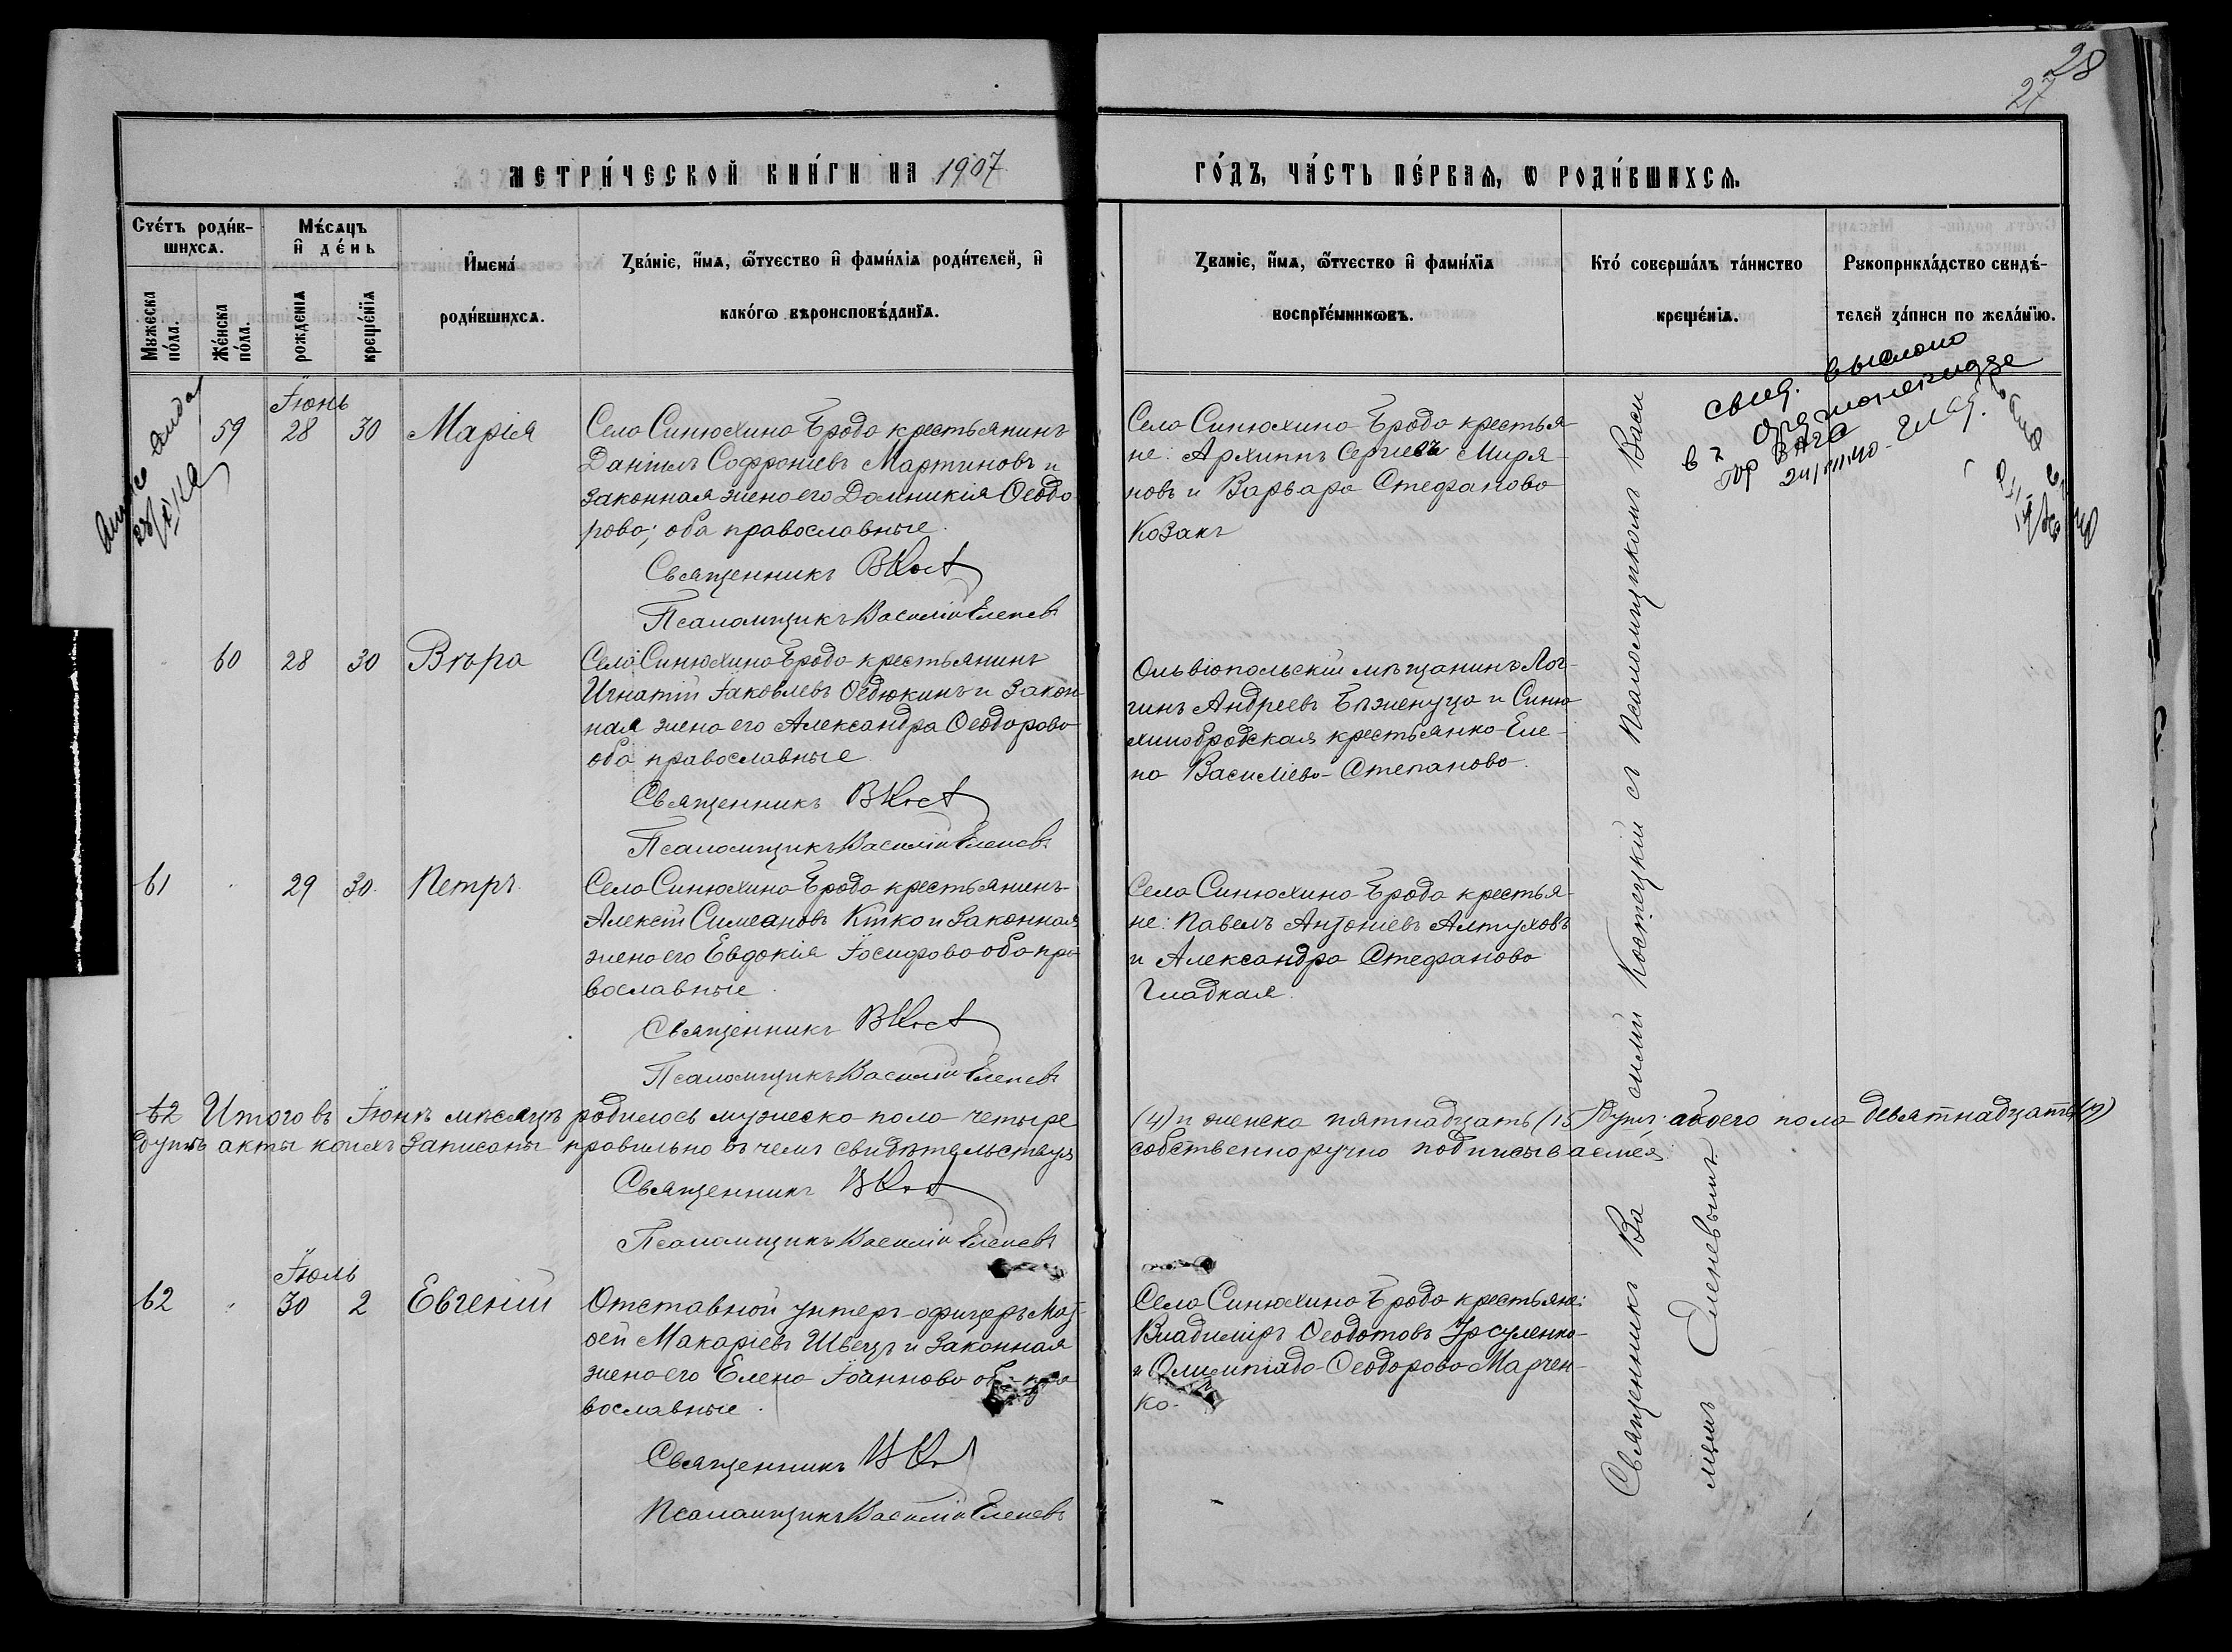 28
27
МЕТРИ́ЧЕСКОЙ КНИ́ГИ НА 1907
ГО́ДЪ, ЧА́СТЬ ПЕ́РВАѦ, Ѡ РОДИ́ВШИХСѦ.
Сче́тъ роди́в-
шихсѧ.
Мѣ́сѧцъ
и҆ де́нь
Мꙋжеска
по́ла.
Же́нска
по́ла.
рожденіѧ
креще́нїѧ
И҆мена́
роди́вшихсѧ.
Ꙁва́нїе, и҆́мѧ, ѻ҆́тчество и҆ фами́лїѧ роди́телей, и҆
како́гѡ вѣроисповѣ́данїѧ.
Ꙁваніе, и҆́мѧ, ѻ҆́тчество и҆ фами́лїѧ
воспрїе́мникѡвъ.
Кто́ соверша́лъ та́инство
креще́нїѧ.
Рꙋкоприкла́дство свидѣ́-
телей за́писи по жела́нїю.
Іюнь
59 28 30 Марія
Села Синюхина-Брода крестьянинъ
Даніилъ Софроніевъ Мартиновъ и
законная жена его Домникія Ѳеодо
рова; оба православные.
Священникъ ВКост
Псаломщикъ Василій Еленевъ
Села Синюхина-Брода крестья-
не: Архиппъ Сергіевъ Миря-
новъ и Варвара Стефанова
Козакъ
свид. выслано
60 28 30 Вѣра
Села Синюхина Брода крестьянинъ
Игнатій Іаковлевъ Ѳедюкинъ и закон
ная жена его Александра Ѳеодорова
оба православные
Священникъ ВКост
Псаломщикъ Василій Еленевъ
Ольвіопольскій мѣщанинъ Лог-
гинъ Андреевъ Бѣженуца и Синю
хинобродская крестьянка Еле-
на Василіева-Степанова.
61 29 30. Петръ.
Села Синюхина-Брода крестьянинъ
Алексій Симеоновъ Китко и законная
жена его Евдокія Іосифова оба пра
вославные.
Священникъ ВКост
Псаломщикъ Василій Еленевъ
Села Синюхина-Брода крестья-
не: Павелъ Антоніевъ Алтуховъ
и Александра Стефанова
Гладкая.
62 Итого въ Іюнѣ мѣсяцѣ родилось мужеска пола четыре (4) и женска пятнадцать (15) душъ обоего пола девятнадцать (19)
душъ акты коихъ записаны правильно въ чемъ свидѣтельствуя собственноручно подписываемся.
Священникъ ВКост
Псаломщикъ Василій Еленевъ
Іюль
62 30 2 Евгеній
Отставной унтеръ-офицеръ Мой-
сей Макаріевъ Швецъ и законная
жена его Елена Іоаннова оба пра
вославные.
Священникъ ВКост
Псаломщикъ Василій Еленевъ
Села Синюхина Брода крестьяне:
Владиміръ Ѳеодотовъ Урсуленко-
и Олимпіада Ѳеодорова Марчен-
ко.
Священникъ Василій Костецкій съ Псаломщикомъ Васи
ліемъ Еленевымъ